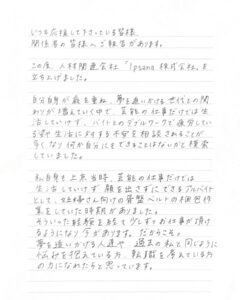 いつも応援して下さっている皆様、
関係者の皆様へご報告があります。
この度、人材関連会社「Ipsana 株式会社」を
立ち上げました。
自分自身が歳を重ね、夢を追いかける世代との関
わりが増えていく中で、芸能の仕事だけでは
生活していけず、バイトとのダブルワークで疲労してい
る姿や生活に対する不安を相談されることが
多くなり何か自分にもできることはないかと模索
していました。
私自身も上京当時、芸能の仕事だけでは
生活していけず顔を出さずにできるアルバイト
として、妊婦さん向けの骨盤ベルトの梱包作
業をしていた時期がありました。
そういった経験を経て少しずつお仕事が頂け
るようになり今があります。だからこそ、
夢を追いかける人達や過去の私と同じように
悩みを抱えている方、転職を考えている方
の力になれたらと思っています。